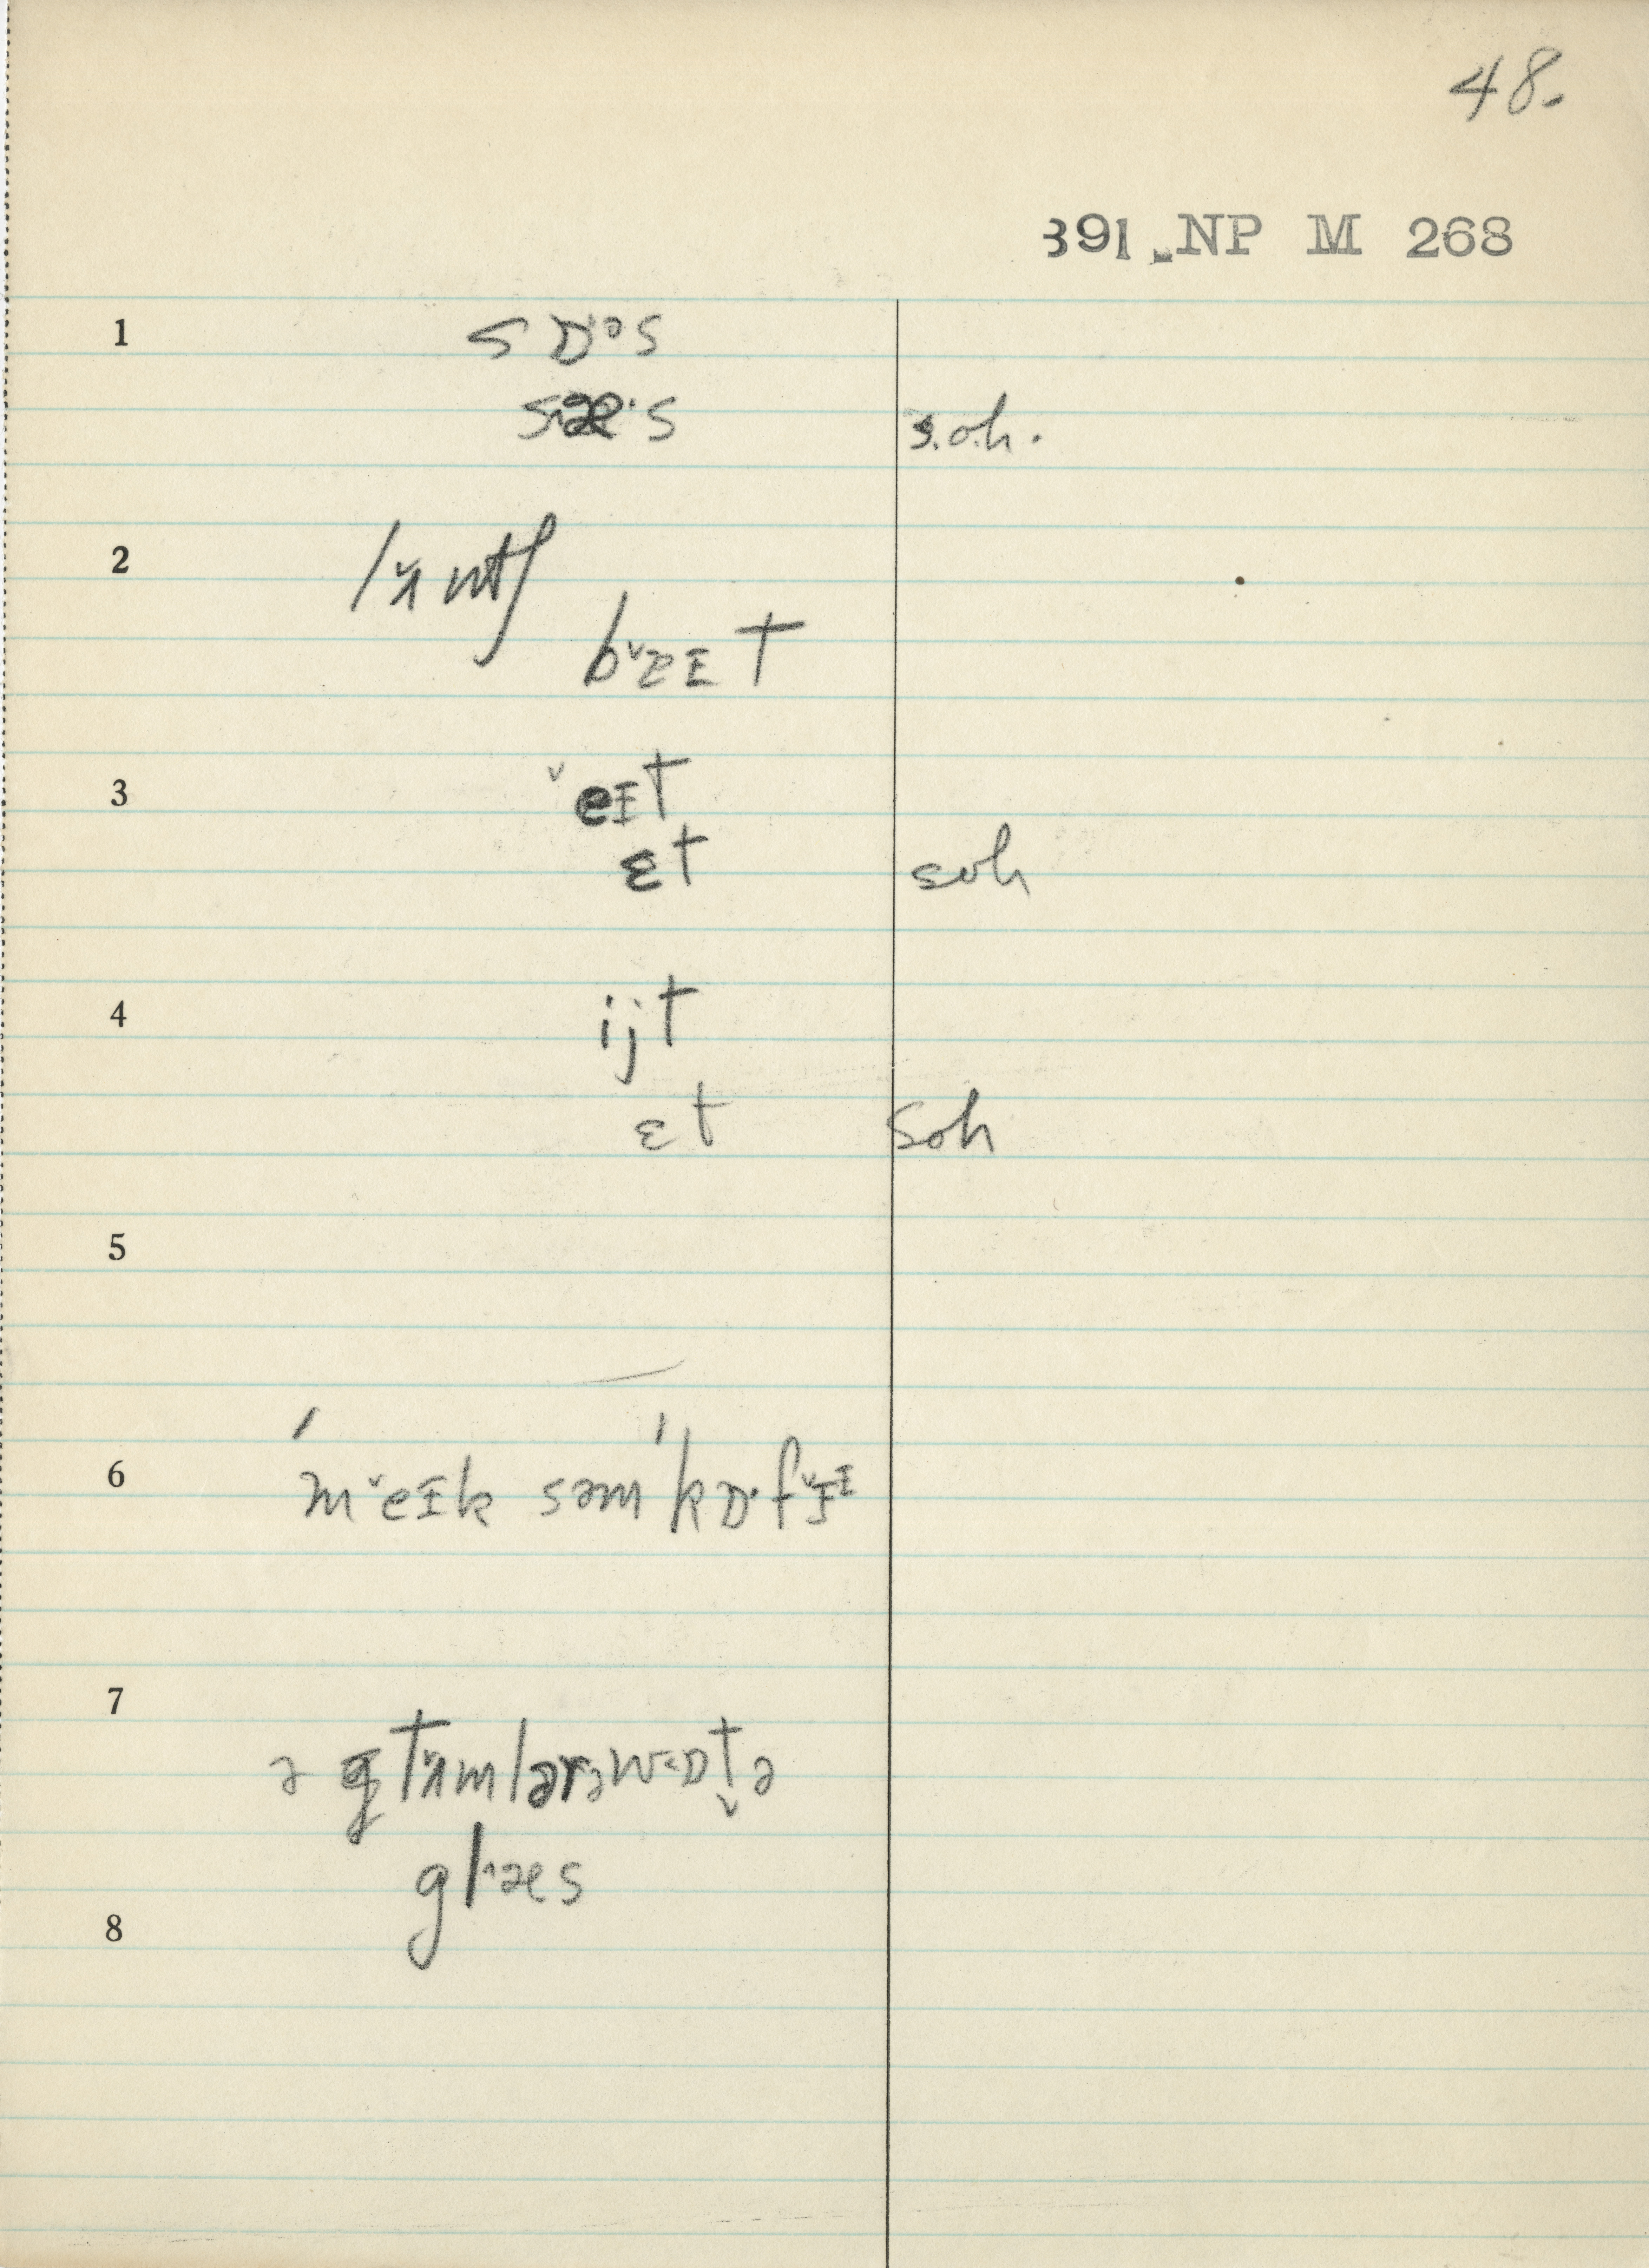 48.
391. NP M 268
1
sɒ·ᵊs
sæ·s s.o.h.
2
lʌ̌ntʃ
bˇɛɪt
3
ˇeɪt
ɛt soh
4
ijt
ɛt soh
5
6
ˊmˇeɪk səmˈkɒ·fˇɪɪ
7
ə g tʌ̌mlərəw˂ɒt̬ə
gl˄æs
8